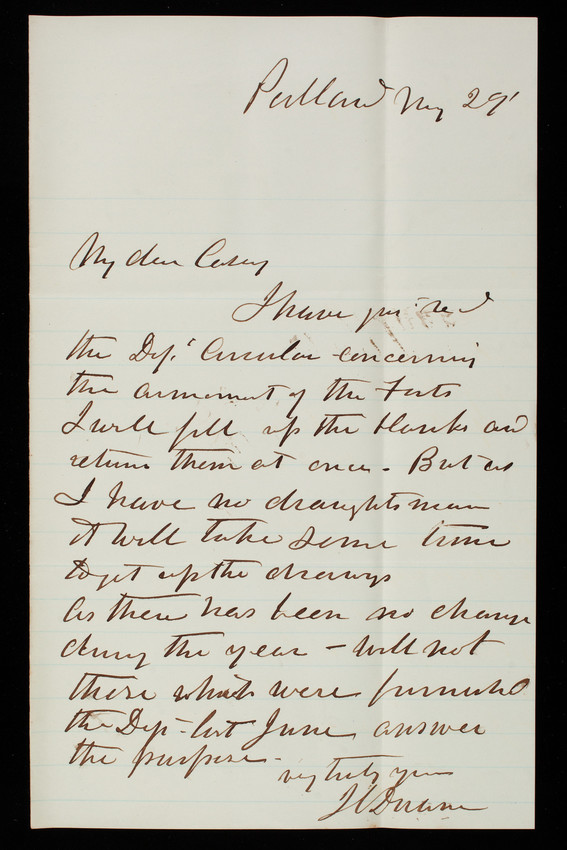 Portland May 29'
My dear Casey
I have just rec'd
the Dept. Circular concerning
the armament of the Forts
I will fill up the blanks and
return them at once - But as
I have no draughtsman
it will take some time
to get up the drawgs
As there has been no change
during the year - will not
those which were furnished
the Dep- last June answer
the purpose -
very truly yours
J C Duane